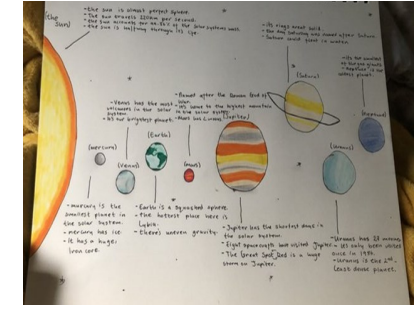 (the sun)
- the sun is almost perfect sphere.
- The sun travels 220km per second.
- the sun accounts for 99.86% of the solar systems mass.
- the sun is halfway through its life.
- Its rings arent solid.
- the day Saturday was named after Saturn.
- Saturn could float in water.
(Saturn)
- its the smallest of the gas giants
- Neptune is our coldest planet.
(Neptune)
- Venus has the most volcanoes in the solar system.
- its our brightest planet.
- Named after the Roman God of war.
- its home to the highest mountain in the solar system.
- Mars has 2 moons.
(Jupiter)
(Earth)
(Mercury)
(Venus)
(mars)
(Uranus)
- mercury is the smallest planet in the solar system.
- mercury has ice.
- it has a huge iron core.
- Earth is a squashed sphere.
- the hottest place here is Lybia.
- theres uneven gravity.
- Jupiter has the shortest days in the solar system.
- Eight spacecrafts have visited Jupiter.
- The Great Spot Red is a huge storm on Jupiter.
- Uranus has 27 moons.
- its only been visited once in 1986.
- Uranus is the 2nd least dense planet.